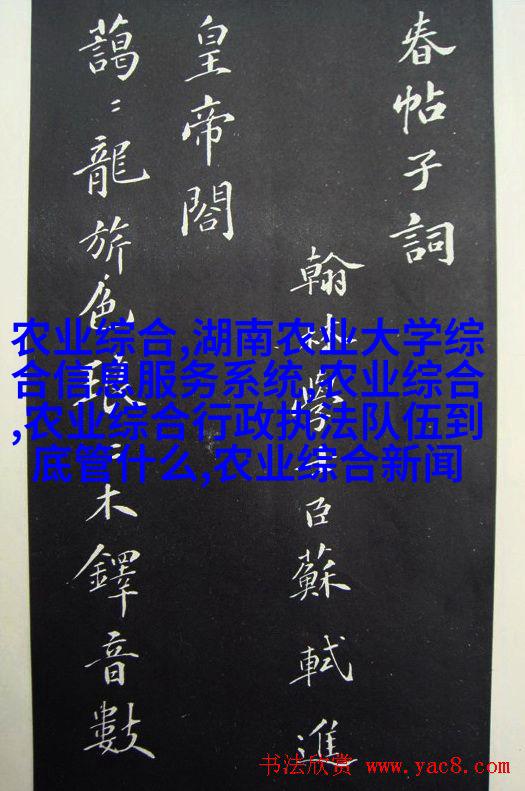 春帖子詞
翰林學士臣蘇軾進
皇帝閤
藹〻龍旂色琅〻木鐸音數
农业综合,湖南农业大学综
合信息服务系统,农业综合
,农业综合行政执法队伍到
底管什么,农业综合新闻
书法欣赏 www.yac8.com